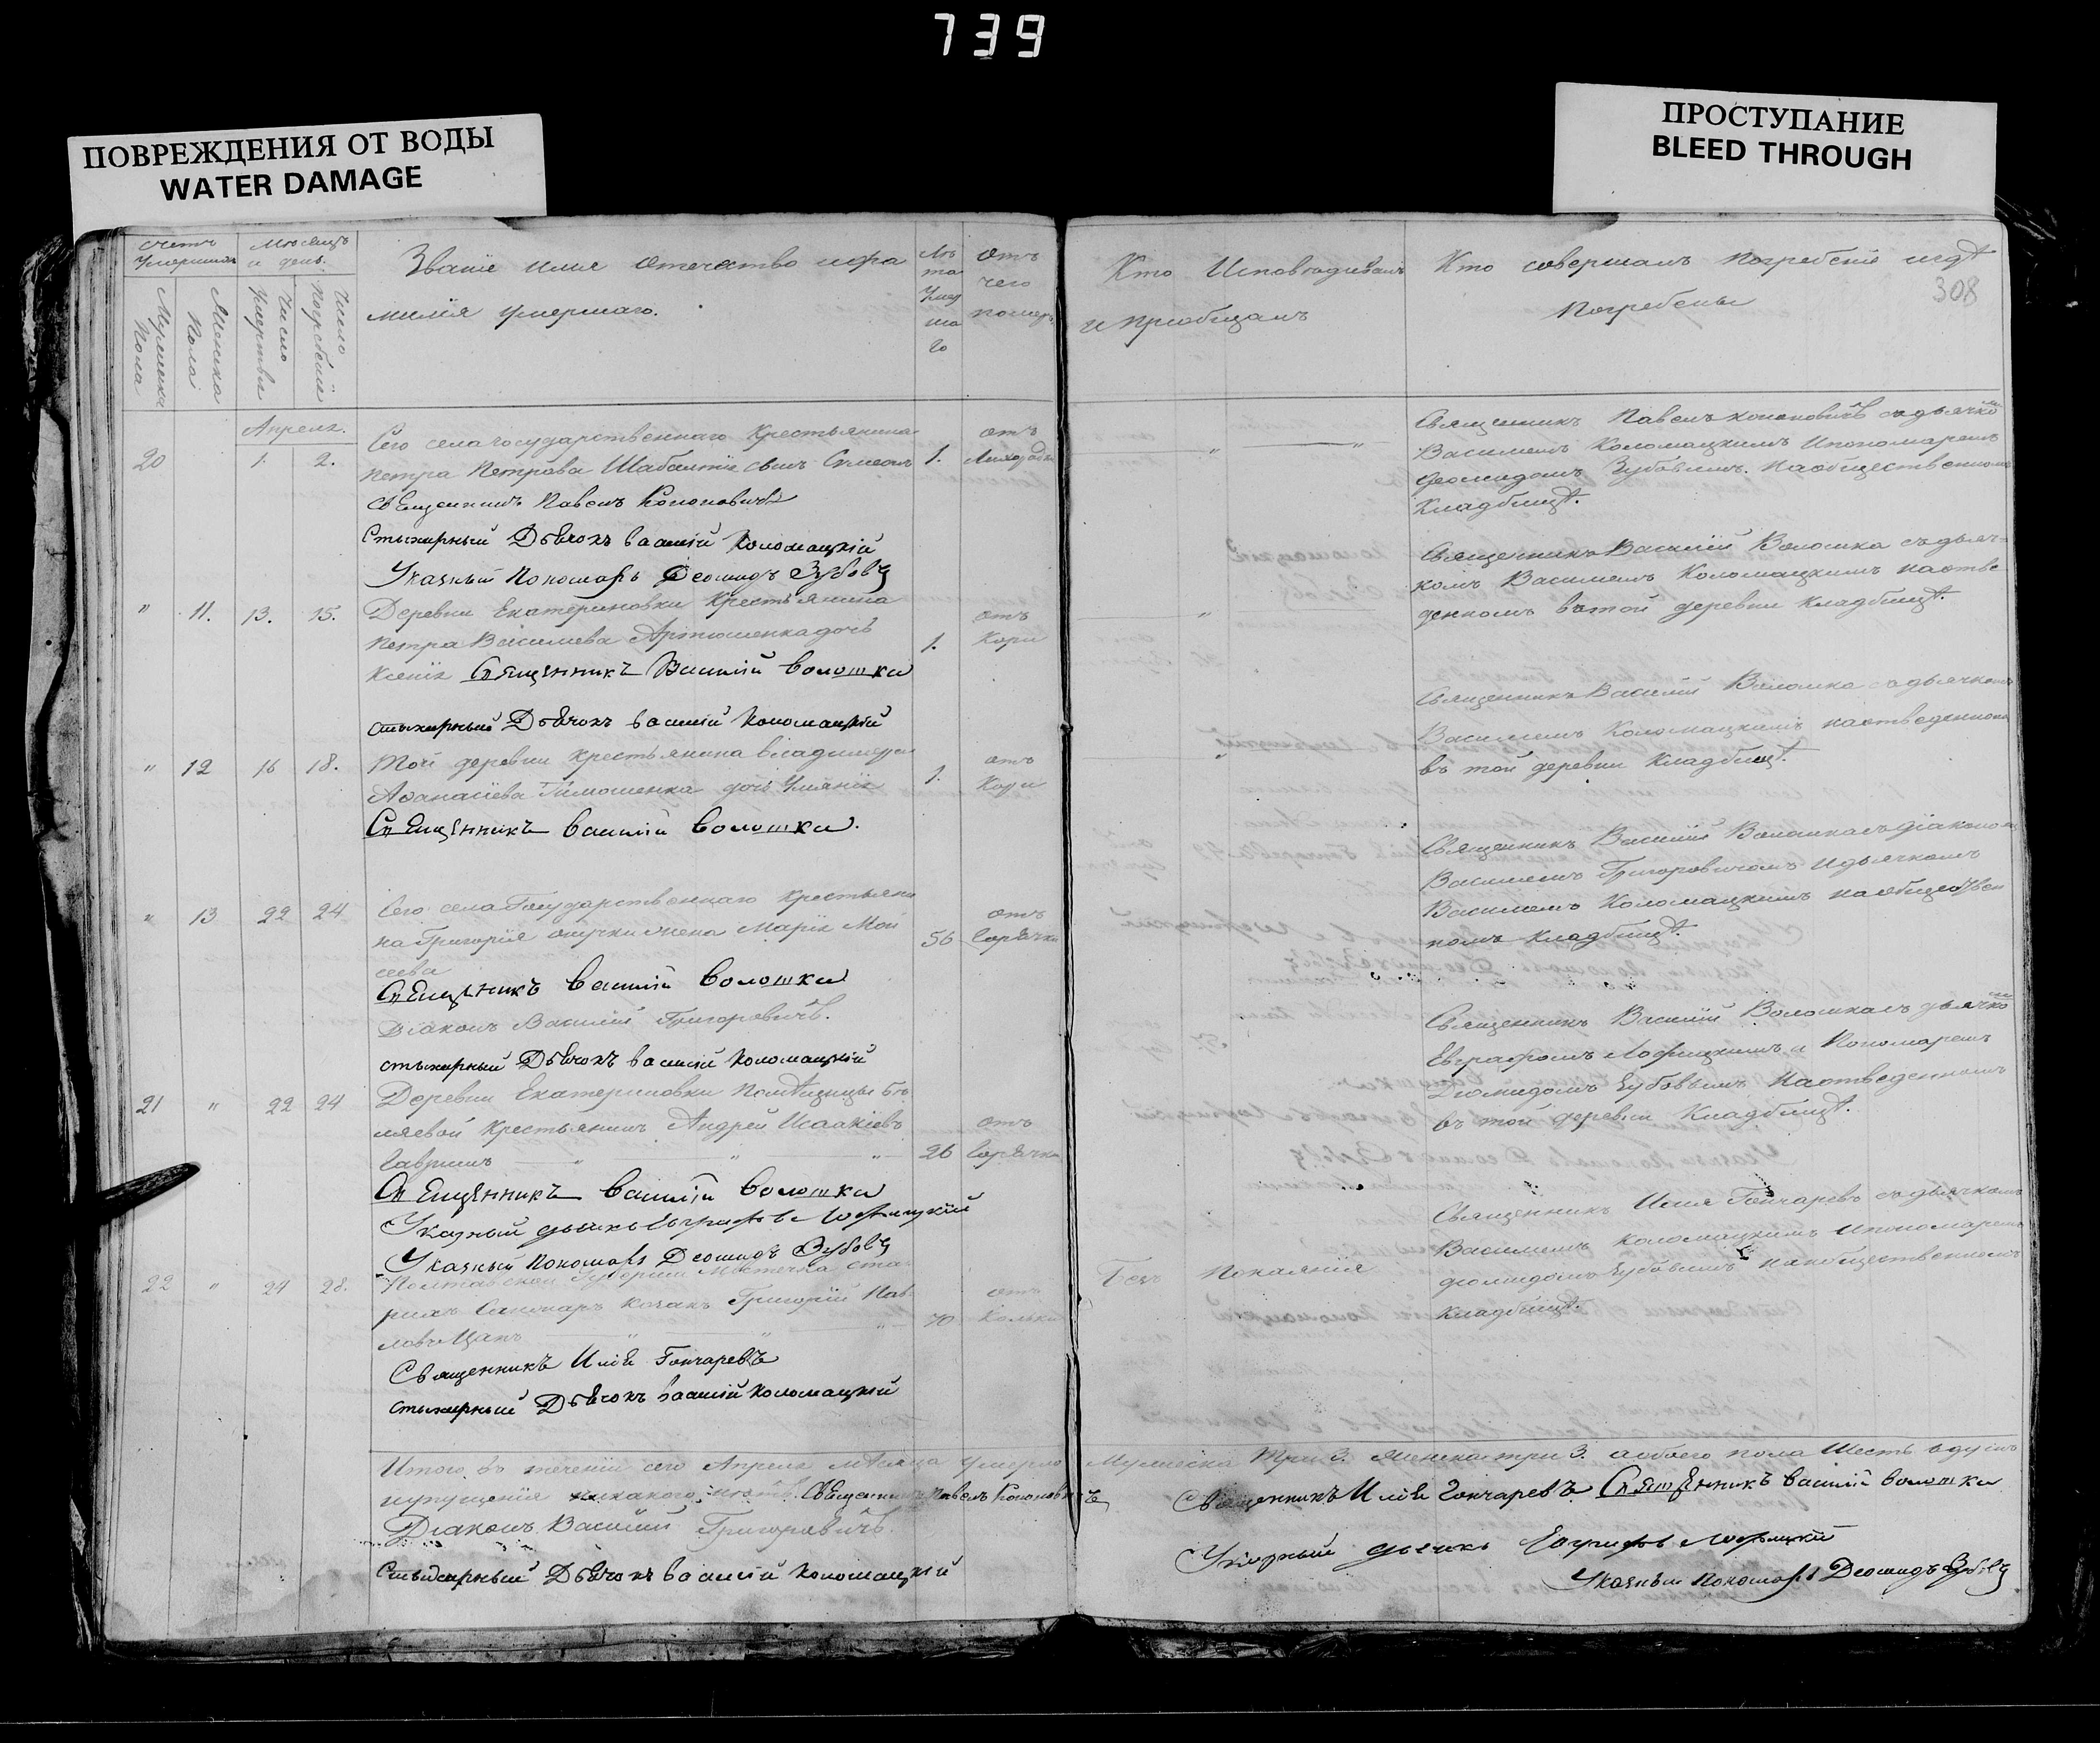 739
ПОВРЕЖДЕНИЯ ОТ ВОДЫ
WATER DAMAGE
ПРОСТУПАНИЕ
BLEED THROUGH
308
Счетъ Умершихъ
Мѣсяцъ и день.
Мужеска Пола
Женска Пола
Число Умертвія
Число Погребенія
Званіе имя отечество и фа
милія умершаго.
Лѣ
та
Умер
ша
го
Отъ
чего
померъ
Кто Исповѣдывалъ
и Пріобщалъ
Кто совершалъ Погребеніе и гдѣ
Погребены
Апреля.
20 1. 2.
Сего села государственнаго Крестьянина
Петра Петрова сынъ Симеонъ
1.
отъ
Священникъ Павелъ Кононовичъ
Стихирный Дьячокъ Василій Коломацкій
Указный Пономарь Деомидъ Зубовъ
Священникъ Павелъ Кононовичъ съ дьячко
Василіемъ Коломацкимъ и пономаремъ
Зубовымъ. На общественномъ
Кладбищѣ.
" 11. 13. 15.
Деревни Екатериновки Крестьянина
Петра Василиева Артюшенка дочь
Ксенія Священникъ Василій Волошка
стихирный Дьячокъ Василій Коломацкій
1.
отъ
Кори
Священникъ Василій Волошка съ дьяч-
комъ Василіемъ Коломацкимъ на отве
денномъ въ той деревни Кладбищѣ.
" 12 16 18.
Той деревни Крестьянина Владимира
Афанасіева Тимошенка дочь
1.
отъ
Кори
Священникъ Василій Волошка.
Священникъ Василій Волошка съ дьячкомъ
Василіемъ Коломацкимъ на отведенномъ
въ той деревни Кладбищѣ.
" 13 22 24
Сего села Государственнаго Крестьяни
на Григорія жена Марія Мои
сеева
56
отъ
горячки
Священникъ Василій Волошка
Діаконъ Василій Григоровичъ.
стихирный Дьячокъ Василій Коломацкій
Священникъ Василій Волошка съ діакономъ
Василіемъ Григоровичомъ и дьячкомъ
Василіемъ Коломацкимъ на обществен
номъ Кладбищѣ.
21 " 22 24
Деревни Екатериновки Помѣщицы Бѣ
ляевой Крестьянинъ Андрей Исаакіевъ
Гавришъ
26
отъ
горячки
Священникъ Василій Волошка
Указный дьячокъ Евграфъ
Указный Пономарь Деомидъ Зубовъ
Священникъ Василій Волошка съ дьячко
Евграфомъ и Пономаремъ
Діомидомъ Зубовымъ На отведенномъ
въ той деревни Кладбищѣ.
22 " 24 28.
Полтавской Губерніи Местечка Ста
рихъ Санжаръ козакъ Григорій Пав
ловъ Цапъ
70
отъ
Кольки
Священникъ Илія Гончаревъ
стихирный Дьячокъ Василій Коломацкій
Безъ Покаянія
Священникъ Илия Гончаревъ съ дьячкомъ
Василіемъ Коломацкимъ и пономаремъ
Діомидомъ Зубовымъ на общественномъ
Кладбищѣ.
Итого въ теченіи сего Апреля мѣсяца Умерло Мужеска Три 3. Женска три 3. а обоего пола Шесть
упущенія никакого нѣтъ. Священникъ Павелъ Кононовичъ
Священникъ Илія Гончаревъ Священникъ Василій Волошка
Діаконъ Василій Григоровичъ.
Стихирный Дьячокъ Василій Коломацкій
дьячокъ Евграфъ
Указный Пономарь Деомидъ Зубовъ